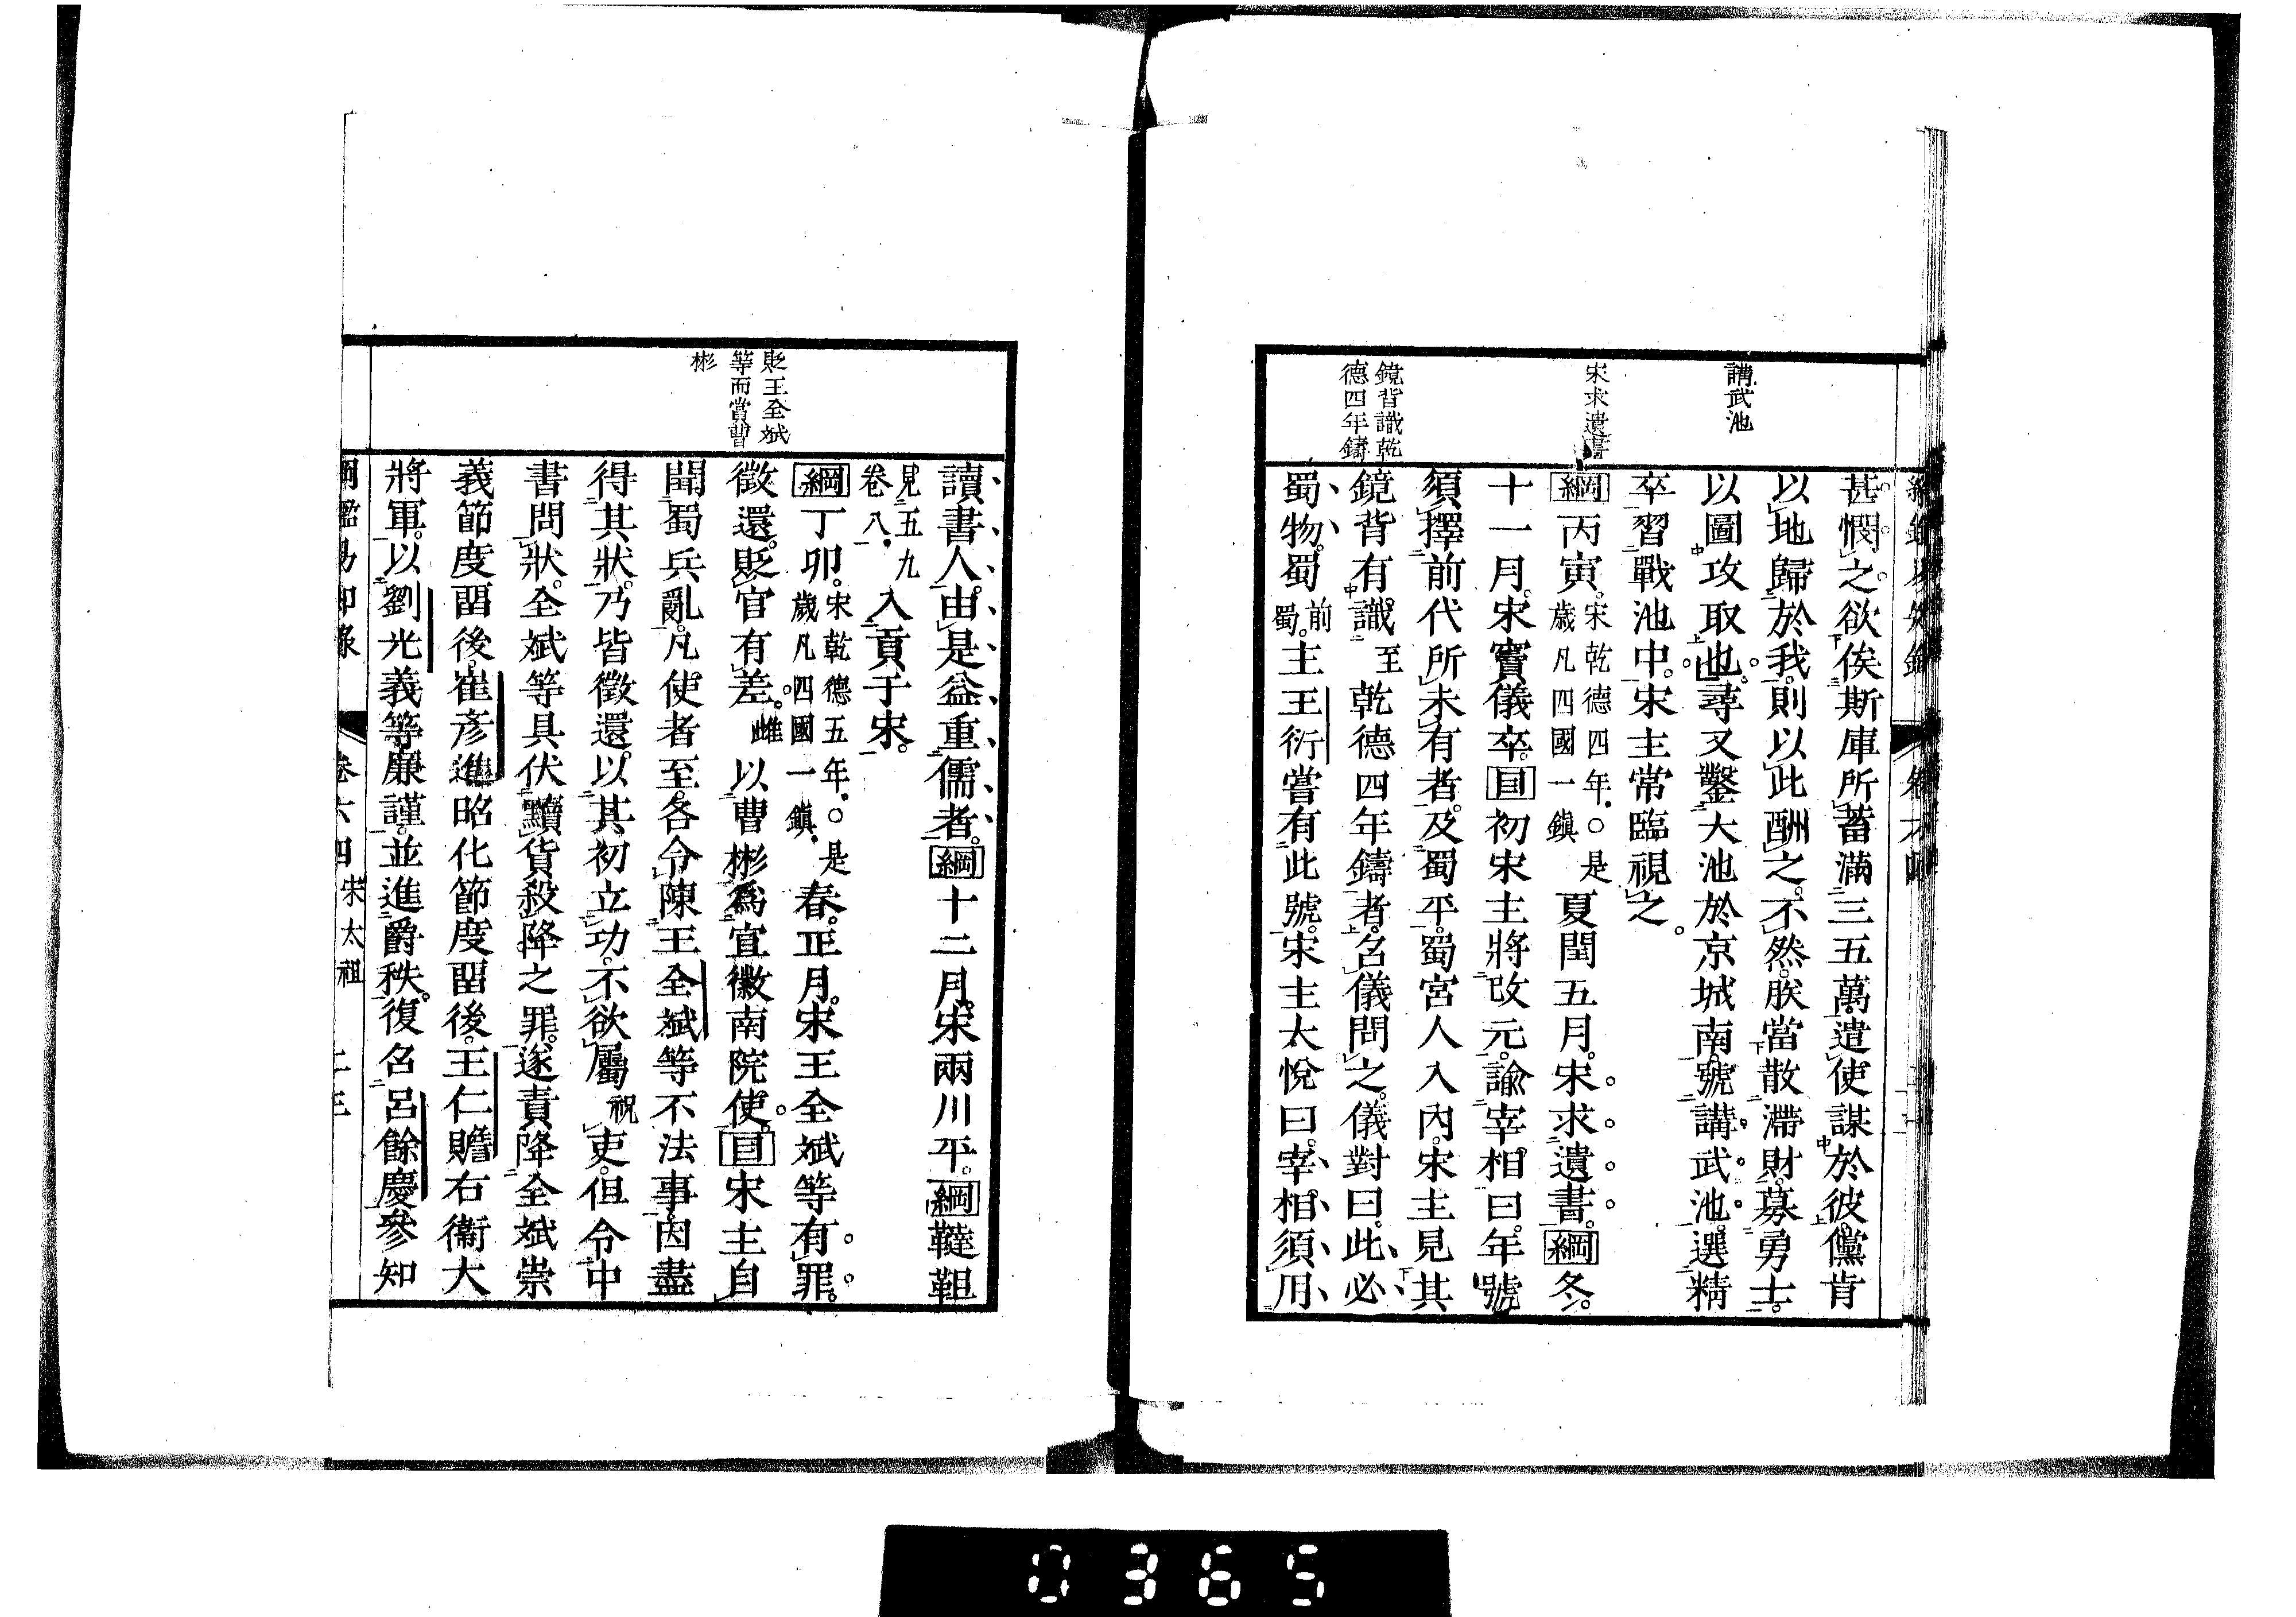 講武池
宋求遺書
鏡背識乾
德四年鑄
甚憫之欲俟斯庫所蓄滿三五萬遣使謀於彼儻肯
以地歸於我則以此酬之不然朕當散滯財募勇士
以圖攻取也尋又鑿大池於京城南號講武池選精
卒習戰池中宋主常臨視之
綱丙寅宋乾德四年○是歲凡四國一鎮夏閏五月宋求遺書綱冬
十一月宋竇儀卒目初宋主將改元諭宰相曰年號
須擇前代所未有者及蜀平蜀宮人入內宋主見其
鏡背有識至乾德四年鑄者召儀問之儀對曰此必
蜀物蜀前蜀主王衍嘗有此號宋主大悅曰宰相須用
貶王全斌
等而賞曹
彬
讀書人由是益重儒者綱十二月宋兩川平綱韃靼
見五九卷八入貢于宋
綱丁卯宋乾德五年○是歲凡四國一鎮春正月宋王全斌等有罪
徵還貶官有差雌以曹彬爲宣徽南院使目宋主自
聞蜀兵亂凡使者至各令陳王全斌等不法事因盡
得其狀乃皆徵還以其初立功不欲屬祝吏但令中
書問狀全斌等具伏黷貨殺降之罪遂責降全斌崇
義節度留後崔彥進昭化節度留後王仁贍右衞大
將軍以劉光義等廉謹並進爵秩復召呂餘慶參知
綱鑑易知錄 卷六四 宋太祖
0365